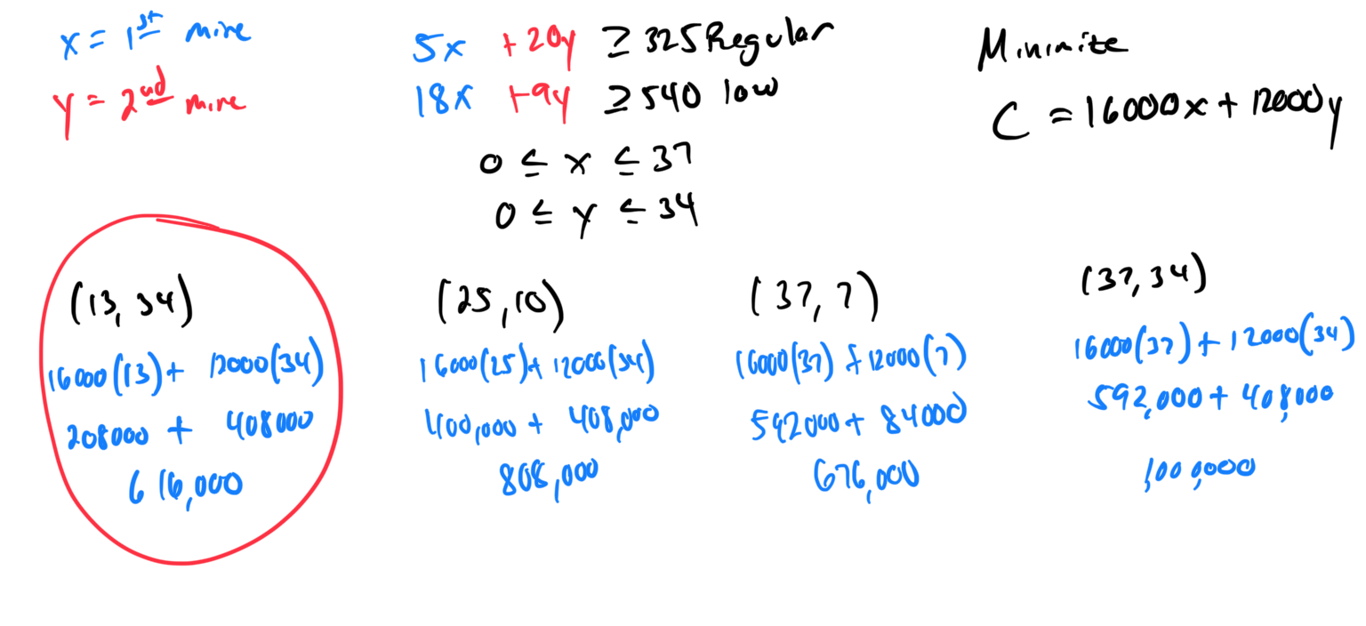 x = 1st mine
y = 2nd mine
5x + 20y ≥ 325 Regular
18x + 9y ≥ 540 low
0 ≤ x ≤ 37
0 ≤ y ≤ 34
Minimize
C = 16000x + 12000y
(13, 34)
16000(13) + 12000(34)
208000 + 408000
616,000
(25, 10)
16000(25) + 12000(34)
400,000 + 408,000
808,000
(37, 7)
16000(37) + 12000(7)
592000 + 84000
676,000
(37, 34)
16000(37) + 12000(34)
592,000 + 408,000
1,000,000